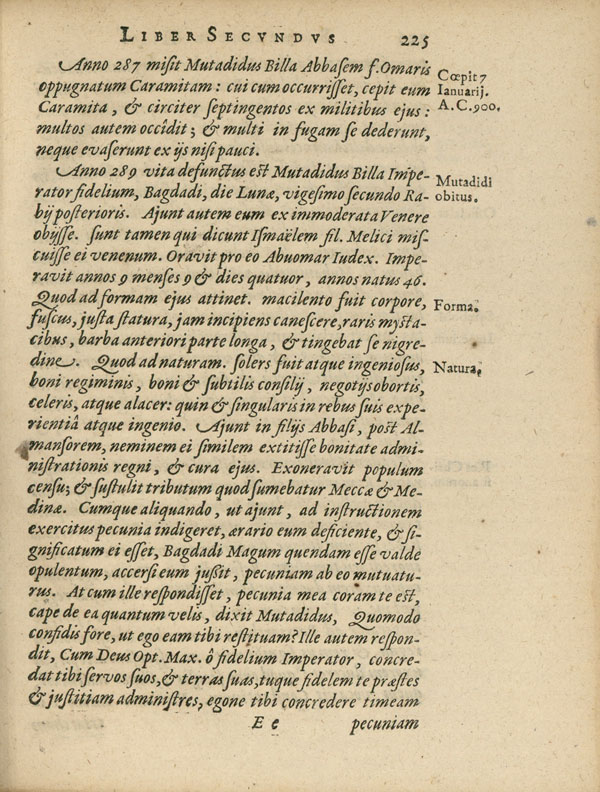 LIBER SECVNDVS 225
Anno 287 misit Mutadidus Billa Abbasem f. Omaris
oppugnatum Caramitam: cui cum occurrisset, cepit eum
Caramita, & circiter septingentos ex militibus ejus:
multos autem occîdit; & multi in fugam se dederunt,
neque evaserunt ex ijs nisi pauci.
Cœpit 7
Ianuarij.
A.C.900.
Anno 289 vita defunctus est Mutadidus Billa Impe-
rator fidelium, Bagdadi, die Lunæ, vigesimo secundo Ra-
bij posterioris. Ajunt autem eum ex immoderata Venere
obijsse. sunt tamen qui dicunt Ismaëlem fil. Melici mis-
cuisse ei venenum. Oravit pro eo Abuomar Iudex. Impe-
ravit annos 9 menses 9 & dies quatuor, annos natus 46.
Mutadidi
obitus.
Quod ad formam ejus attinet. macilento fuit corpore,
fuscus, justa statura, jam incipiens canescere, raris mysta-
cibus, barba anteriori parte longa, & tingebat se nigre-
dine. Quod ad naturam. solers fuit atque ingeniosus,
Forma.
Natura.
boni regiminis, boni & subtilis consilij, negotijs obortis,
celeris, atque alacer: quin & singularis in rebus suis expe-
rientiâ atque ingenio. Ajunt in filijs Abbasi, post Al-
mansorem, neminem ei similem extitisse bonitate admi-
nistrationis regni, & cura ejus. Exoneravit populum
censu; & sustulit tributum quod sumebatur Meccæ & Me-
dinæ. Cumque aliquando, ut ajunt, ad instructionem
exercitus pecunia indigeret, ærario eum deficiente, & si-
gnificatum ei esset, Bagdadi Magum quendam esse valde
opulentum, accersi eum jussit, pecuniam ab eo mutuatu-
rus. At cum ille respondisset, pecunia mea coram te est,
cape de ea quantum velis, dixit Mutadidus, Quomodo
confidis fore, ut ego eam tibi restituam? Ille autem respon-
dit, Cum Deus Opt. Max. ô fidelium Imperator, concre-
dat tibi servos suos, & terras suas, tuque fidelem te præstes
& justitiam administres, egone tibi concredere timeam
E e pecuniam